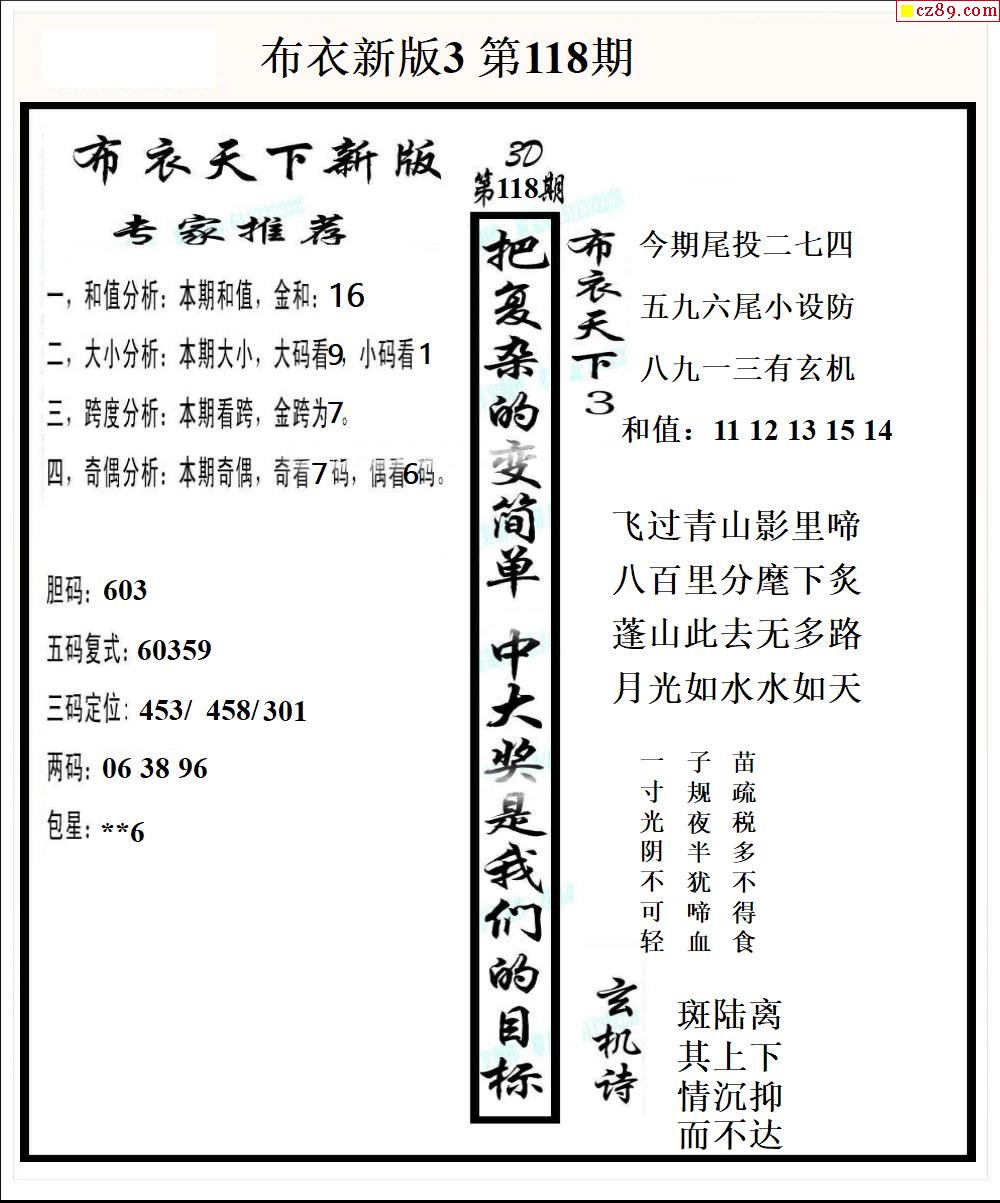 cz89.com
布衣新版3 第118期
布衣天下新版
专家推荐
一，和值分析：本期和值，金和：16
二，大小分析：本期大小，大码看9，小码看1
三，跨度分析：本期看跨，金跨为7。
四，奇偶分析：本期奇偶，奇看7码，偶看6码。
胆码：603
五码复式：60359
三码定位：453/ 458/301
两码：06 38 96
包星：**6
3D
第118期
把复杂的变简单 中大奖是我们的目标
布衣天下3
今期尾投二七四
五九六尾小设防
八九一三有玄机
和值：11 12 13 15 14
飞过青山影里啼
八百里分麾下炙
蓬山此去无多路
月光如水水如天
苗疏税多不得食
子规夜半犹啼血
一寸光阴不可轻
玄机诗
斑陆离
其上下
情沉抑
而不达